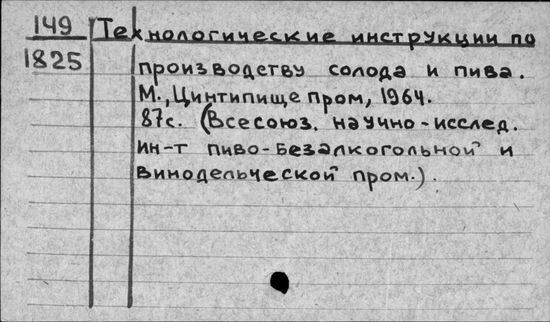 149 Технологические инструкции по
1825 производству солода и пива.
М., Цинтипищепром, 1964.
87с. (Всесоюз. научно-исслед.
ин-т пиво-безалкогольной и
винодельческой пром.).